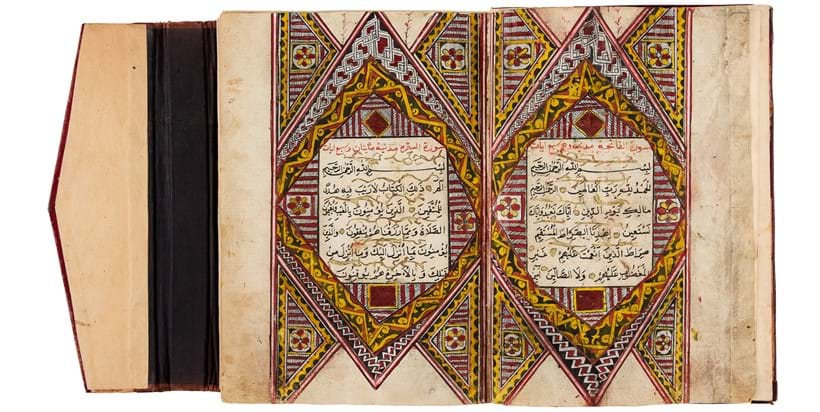 سورة الفاتحة وهي سبع ايات
بسم الله الرحمن الرحيم
الحمد لله رب العالمين الرحمن الرحيم
مالك يوم الدين إياك نعبد وإياك
نستعين اهدنا الصراط المستقيم
صراط الذين أنعمت عليهم غير
المغضوب عليهم ولا الضالين
سورة البقرة مدنية مائتان وسبع ايات
بسم الله الرحمن الرحيم
الم ذلك الكتاب لا ريب فيه هدى
للمتقين الذين يؤمنون بالغيب ويقيمون
الصلاة ومما رزقناهم ينفقون والذين
يؤمنون بما أنزل إليك وما أنزل من
قبلك وبالآخرة هم يوقنون